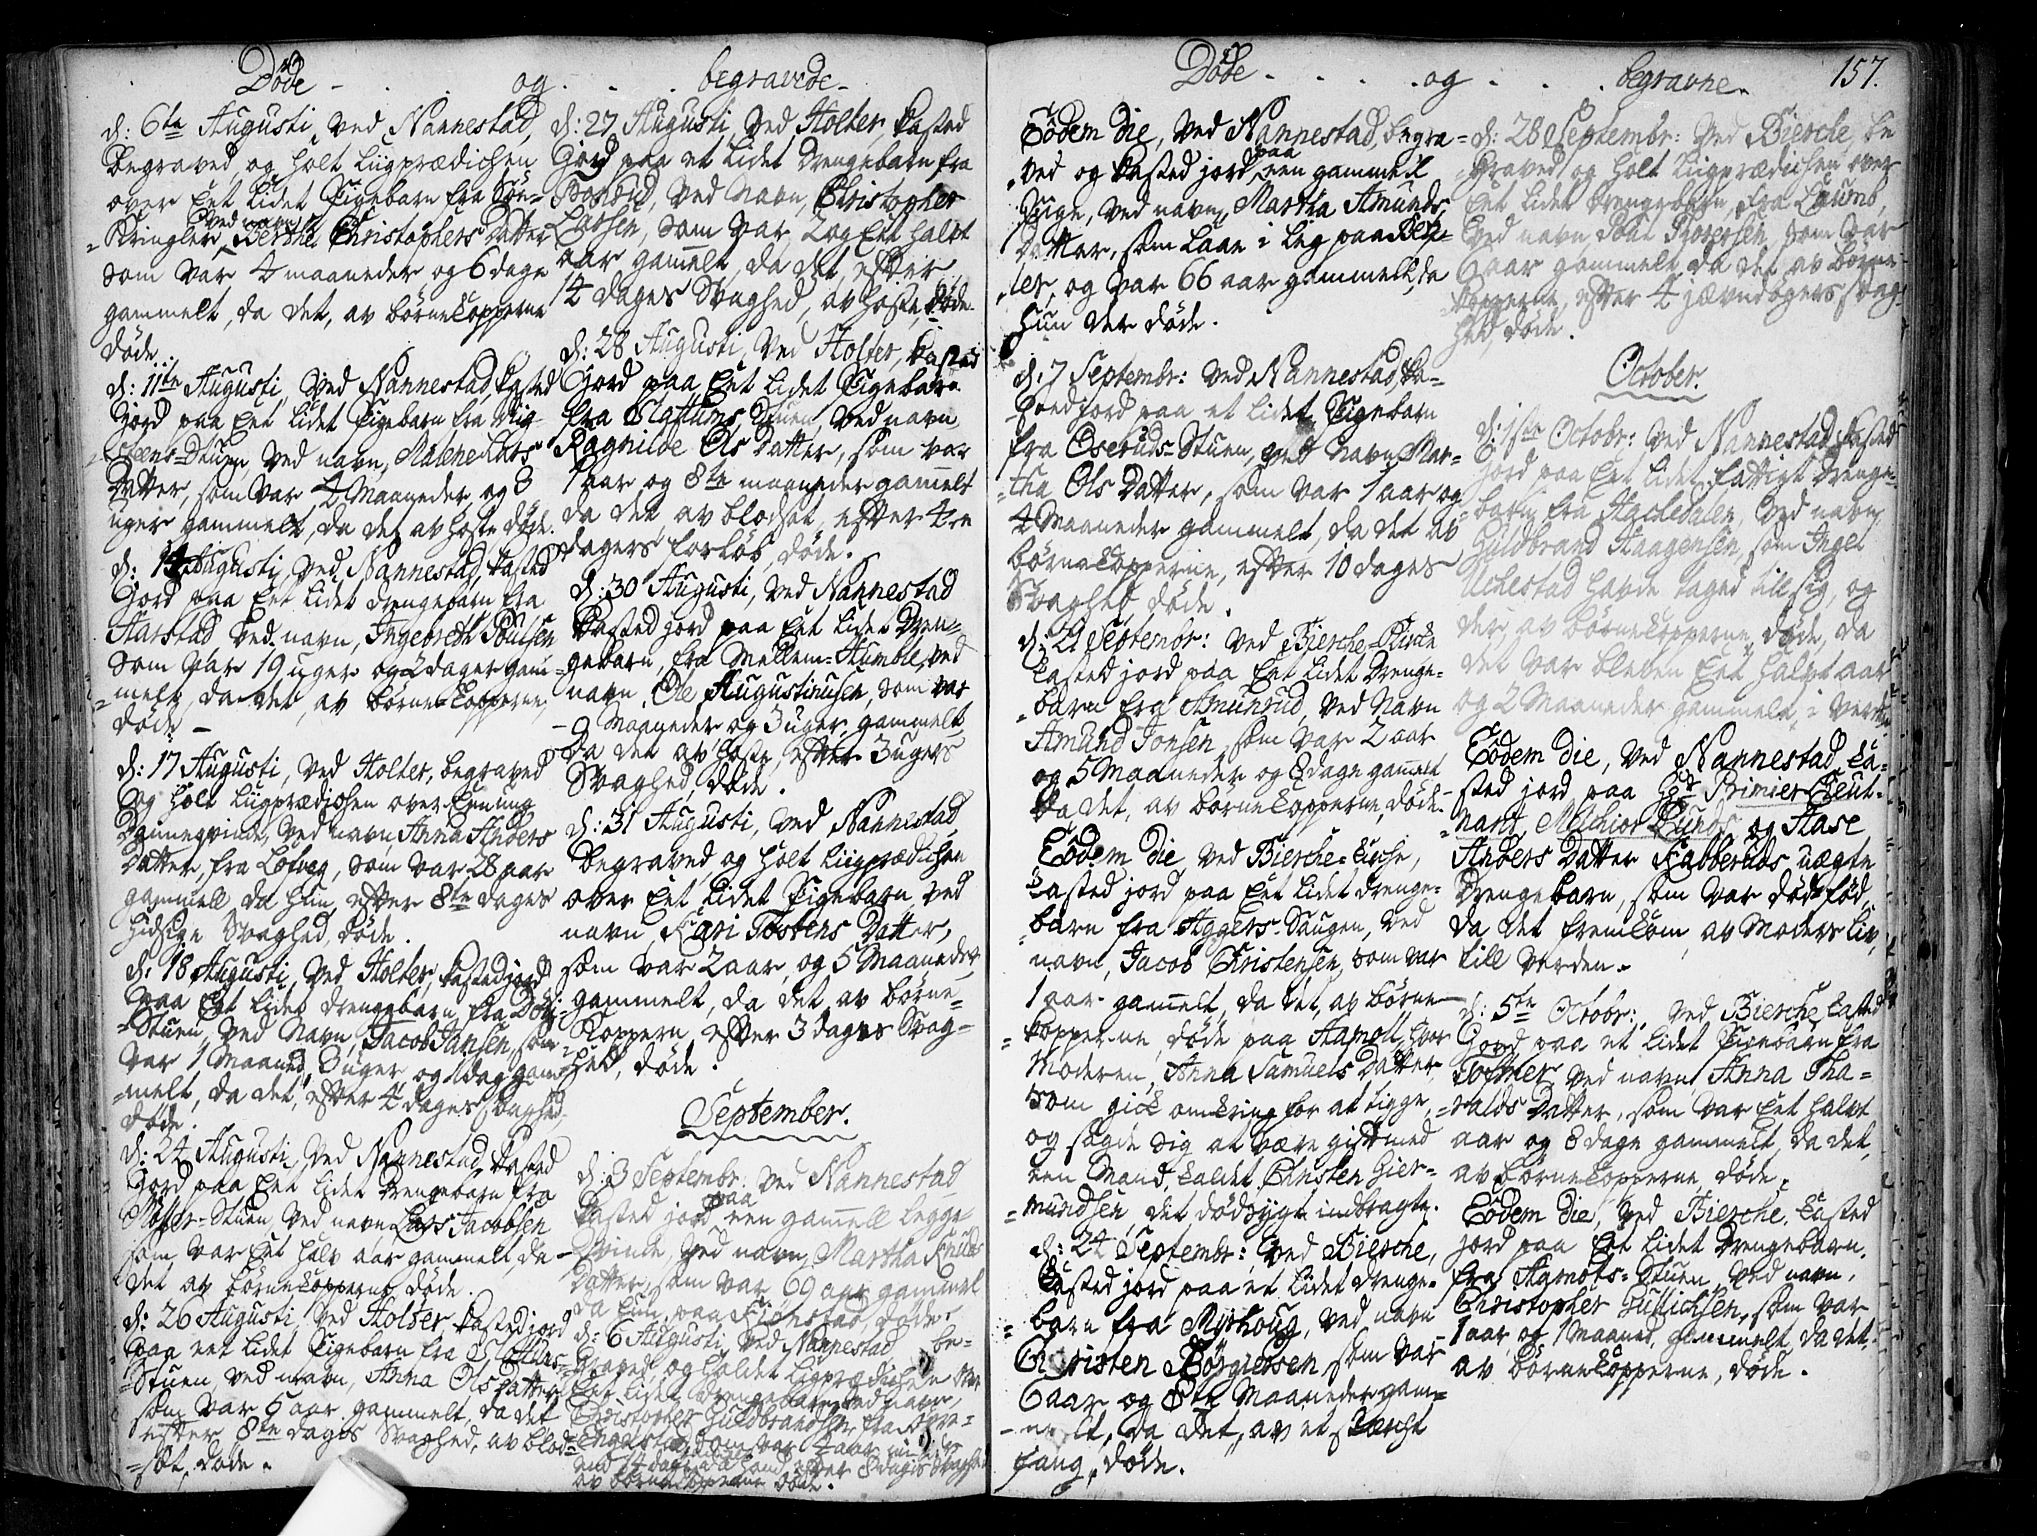 Døde - . . og . . . begravede -
d: 6te Augusti, ved Nannestad,
begraved og holt Liigprædichen
over Eet lidet Pigebarn fra Søn-
ved navn
-Kringler, Berthe Christophers Datter
som var 4 maaneder og 6 dage
gammelt, da det, av børnekopperne
døde.
d: 11te Augusti, ved Nannestad, kasted
Jord paa Eet lidet Pigebarn fra
Steens-Stuen, ved navn, Malene Lars
Datter, som var 4 Maaneder og 3
uger gammelt, da det av hoste døde.
d: 14 Augusti, ved Nannestad, kasted
Jord paa Eet lidet drengebarn fra
Aarstad ved navn, Ingebreth Poulsen
som var 19 uger og 2 dager gam-
-melt, da det, av børne-kopperne,
døde -
d: 17 Augusti, ved Holter, begraved
og holt Liigprædichen over
Danneqvinde, ved navn Anna Anders
Datter, fra Løken, som var 28 aar
gammell da hun, efter 8te dages
hidsige Svaghed, døde.
d: 18 Augusti, ved Holter, kasted jord
paa Eet lidet drengebarn, fra
-Stuen, ved Navn, Jacob Jansen, som
var 1 Maaned, 3 uger og 1 dag gam-
-melt, da det, efter 4 dages svaghed,
døde.
d: 24 Augusti, ved Nannestad, kasted
Jord paa Eet lidet drengebarn fra
Møller-Stuen, ved navn Lars Jacobsen
som var Eet halv aar gammelt, da
det av børnekopperne døde.
d: 26 Augusti, ved Holter kasted jord
paa eet lidet Pigebarn fra
-Stuen, ved navn, Anna Ols Datter
som var 5 aar gammelt, da det
efter 8te dages Svaghed, av blod-
-sot, døde.
d: 27 Augusti, ved Holter, kasted
Jord paa et lidet drengebarn fra
ved Navn, Christopher
Larsen, som var 2 og Eet halvt
aar gammelt, da det, efter
14 dages Svaghed, av hoste, døde.
d: 28 Augusti, ved Holter, kasted
Jord paa Eet lidet Pigebarn
fra Stuen, ved navn
Ragnilde Ols Datter, som var
1 aar og 8te maaneder gammelt
da det, av blodsot, efter 4re
dagers forløb, døde.
d: 30 Augusti, ved Nannestad
kasted jord paa Eet lidet dren-
gebarn, fra Mellem-Humble, ved
navn, Ole Augustinusen, som var
9 Maaneder og 3 uger, gammelt,
da det av hoste, efter 3 ugers
Svaghed, døde.
d: 31 Augusti, ved Nannestad
begraved, og holt liigprædichen
over Eet lidet Pigebarn, ved
navn, Kari Tostens Datter,
som var 2 aar, og 5 Maaneder
gammelt, da det, av børne-
kopperne, efter 3 dages Svag-
hed, døde.
September.
d: 3 Septembr: ved Nannestad
paa
kasted jord een gammell legge
Qvinde, ved navn, Martha Knuds
Datter, som var 69 aar gammel
da hun, paa døde.
d: 6 Augusti, ved Nannestad be-
graved, og holdet ligprædichen over
Eet lidet drengebarn, ved navn,
Christopher Guldbrandsen, fra
som var 4 aar
efter 8 dages Svaghed
av børnekopperne døde.
Døde - . . . og . . . begravne. 157.
Eodem die, ved Nannestad, begra-
paa
ved og kasted jord, een gammel
Pige, ved navn, Martha Amunds
Datter, som laae i leg paa
og var 66 aar gammell, da
hun der døde.
d: 7 Septembr: ved Nannestad, ka-
sted jord paa et lidet Pigebarn
fra Oseruds-Stuen, ved Navn Mar-
-tha Ols Datter, som var 1 aar, og
4 Maaneder gammelt, da det av
børnekopperne, efter 10 dages
Svaghed, døde.
d: 21 Septembr: ved Bierche-Kirche
kasted jord paa Eet lidet drenge-
-barn fra Amunrud, ved Navn
Amund Jonsen, som var 2 aar
og 5 Maaneder og 8 dage gammelt
da det, av børnekopperne, døde.
Eodem die ved Bierche-kirche,
kasted jord paa Eet lidet drenge-
-barn fra Aggers-Saugen, ved
navn, Jacob Christensen, som var
1 aar gammelt, da det, av børne-
-kopperne, døde paa Aamott, hvor
Moderen, Anna Samuels Datter,
som gick omkring for at tigge,
og sagde sig at være gift med
een Mand, kaldet, Christen Gier-
-mundsen det dødsyge indbragte.
d: 24 Septembr: ved Bierche,
kasted jord paa et lidet drenge-
-barn fra Myrhoug, ved navn
Christen Børgersen som var
6 aar og 8te Maaneder gam-
-melt, da det, av et
fang, døde.
d: 28 Septembr: ved Bierche, be
graved og holt Liigprædichen over
Eet lidet drengebarn, fra
ved navn Poul som var
6 aar gammelt, da det av børne-
kopperne, efter 4 jævndøgers svag-
hed, døde.
October.
d: 1ste Octobr: ved Nannestad, kasted
jord paa Eet lidet, fattigt drenge-
barn fra Hachedalen, ved navn
Guldbrand Haagensen, som Inger
Uchestad havde taged till sig, og
der, av børnekopperne, døde, da
det var bleven Eet halvt aar
og 2 Maaneder gammelt, i Verden
Eodem die, ved Nannestad, ka-
-sted jord paa Hr Primier Leut-
-nant Melchior Lunds og Aase
Anders Datter Fabberuds uægte
drengebarn, som var dødfød,
da det fremkom, av Moders liv,
till verden.
d: 5te Octobr: ved Bierche kasted
Jord paa et lidet Pigebarn fra
Tochner, ved navn, Anna Tha-
-ralds Datter, som var Eet halvt
aar og 8 dage gammelt, da det,
av børnekopperne, døde.
Eodem die, ved Bierche, kasted
jord paa Eet lidet drengebarn,
fra Aamots-Stuen, ved navn,
Christopher Gullichsen, som var
1 aar, og 1 Maaned, gammelt, da det,
av børnekopperne, døde.